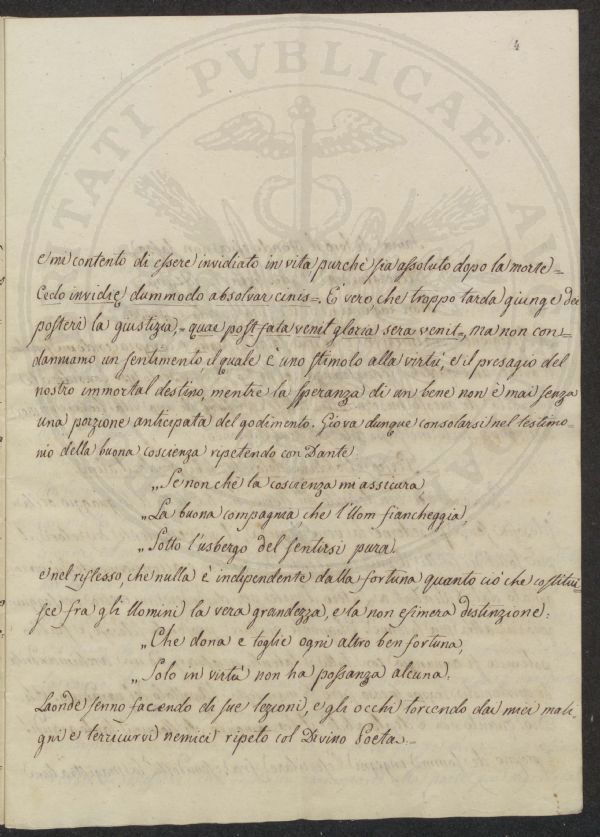 4
TATI PVBLICAE
e mi contento di essere invidiato in vita purchè sia assoluto dopo la morte=
Cedo invidię dummodo absolvar cinis=. E' vero, che troppo tarda giunge dei
posteri la giustizia,=quae post fata venit gloria sera venit=, ma non con=
danniamo un sentimento, il quale è uno stimolo alla virtù, e il presagio del
nostro immortal destino, mentre la speranza di un bene non è mai senza
una porzione anticipata del godimento. Giova dunque consolarsi nel testimo=
nio della buona coscienza ripetendo con Dante
„Se non chè la coscienza mi assicura
„La buona compagnia, che l'Uom fiancheggia,
„Sotto l'usbergo del sentirsi pura.
e nel riflesso, che nulla è indipendente dalla fortuna quanto ciò che costitui=
sce fra gli Uomini la vera grandezza, e la non efimera distinzione:
„Che dona e toglie ogni altro ben fortuna,
„Solo in virtù non ha possanza alcuna.
Laonde senno facendo di sue lezioni, e gli occhi torcendo dai miei mali=
gni e terricurvi nemici ripeto col Divino Poeta.=